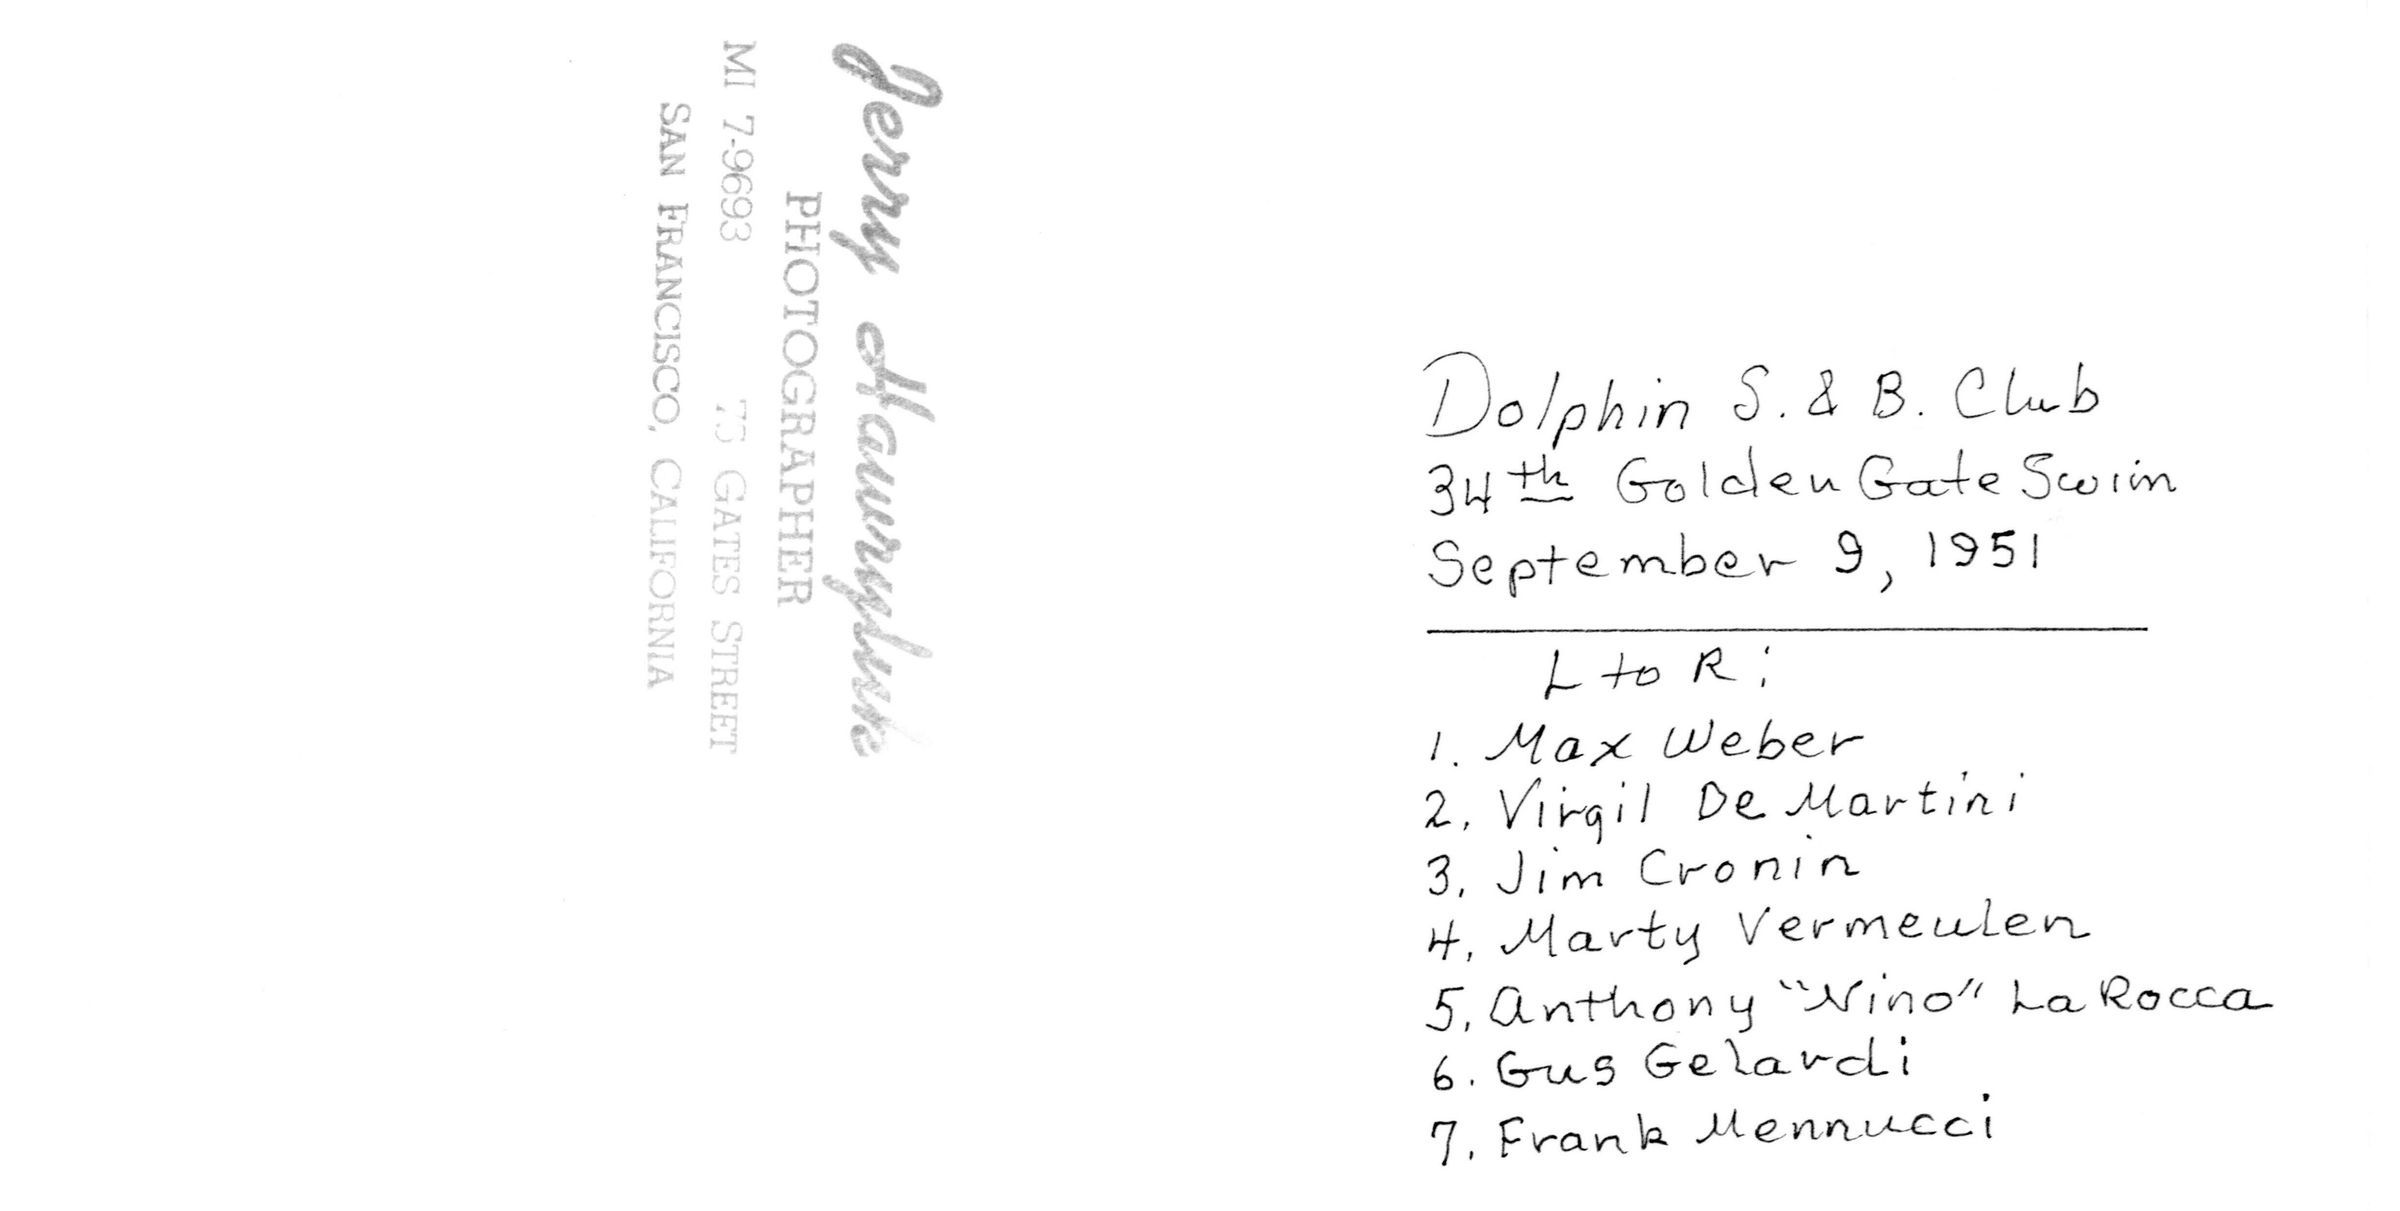 Jerry Hawryluk
PHOTOGRAPHER
MI 7-9693 75 GATES STREET
SAN FRANCISCO, CALIFORNIA
Dolphin S. & B. Club
34th Golden Gate Swim
September 9, 1951
L to R:
1. Max Weber
2. Virgil De Martini
3. Jim Cronin
4. Marty Vermeulen
5. Anthony "Nino" La Rocca
6. Gus Gelardi
7. Frank Mennucci